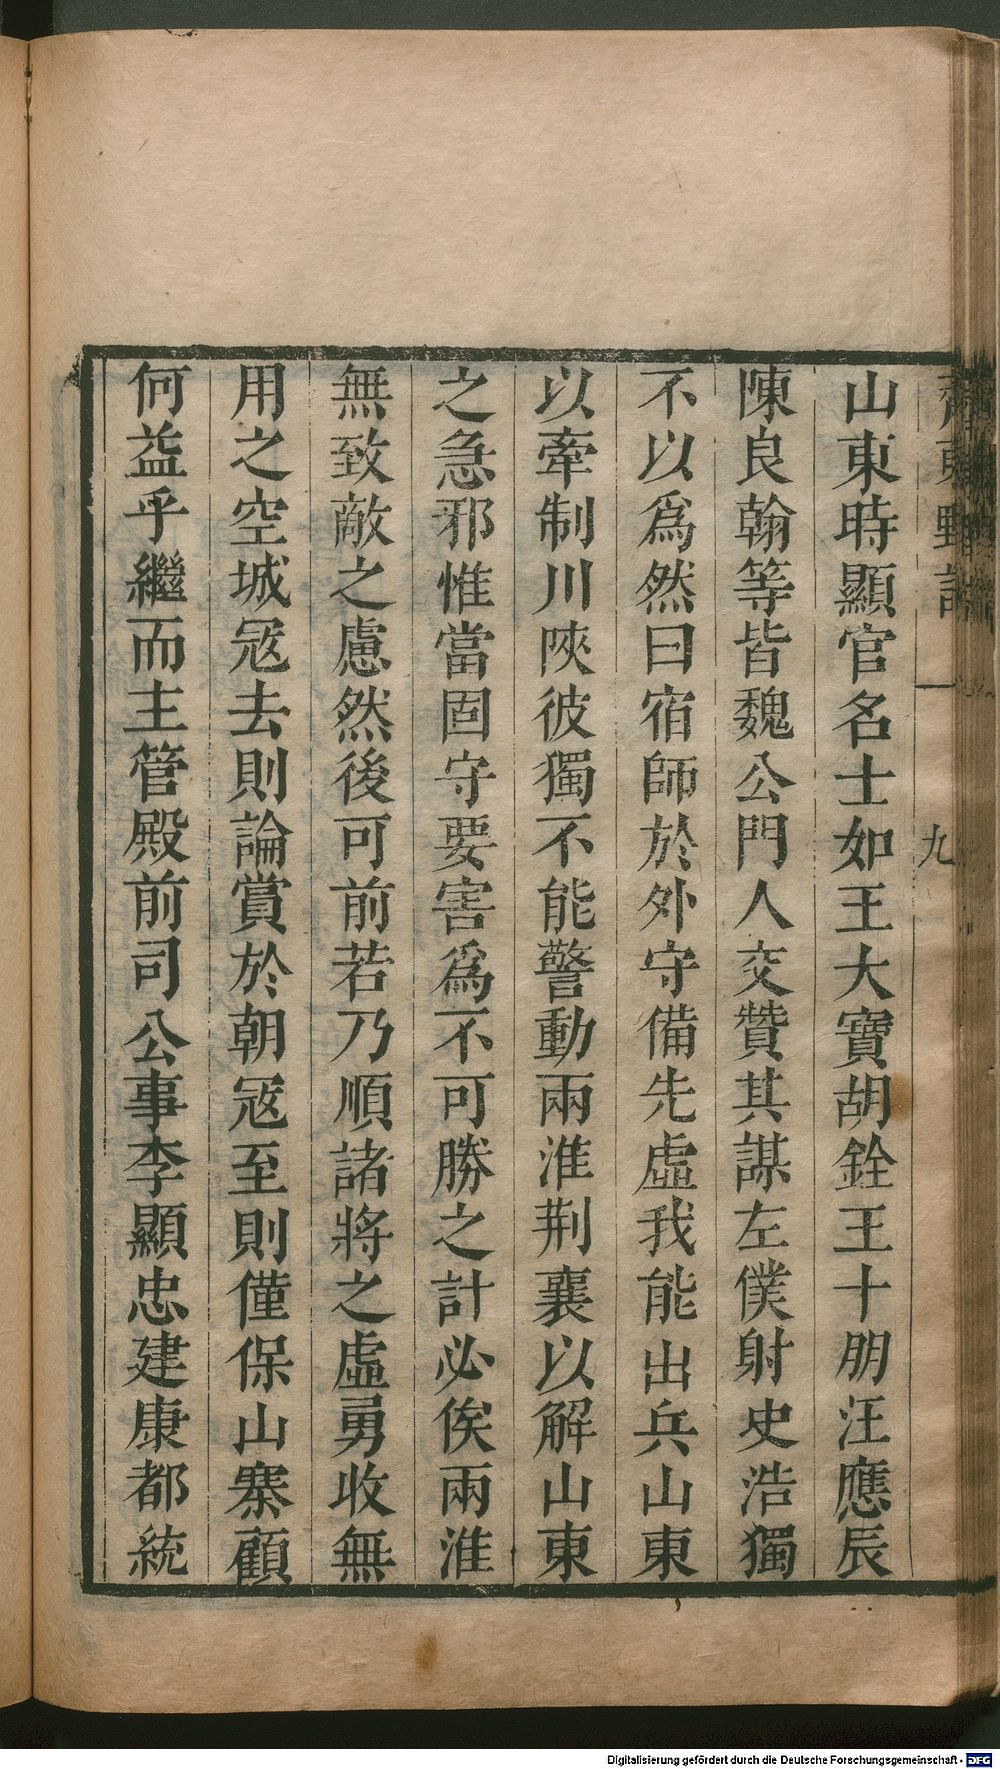 山東時顯官名士如王大寶胡銓王十朋汪應辰
陳良翰等皆魏公門人交贊其謀左僕射史浩獨
不以爲然曰宿師於外守備先虛我能出兵山東
以牽制川陜彼獨不能警動兩淮荆襄以解山東
之急邪惟當固守要害爲不可勝之計必俟兩淮
無致敵之慮然後可前若乃順諸將之虛勇收無
用之空城冦去則論賞於朝冦至則僅保山寨顧
何益乎繼而主管殿前司公事李顯忠建康都統
九
Digitalisierung gefördert durch die Deutsche Forschungsgemeinschaft - DFG